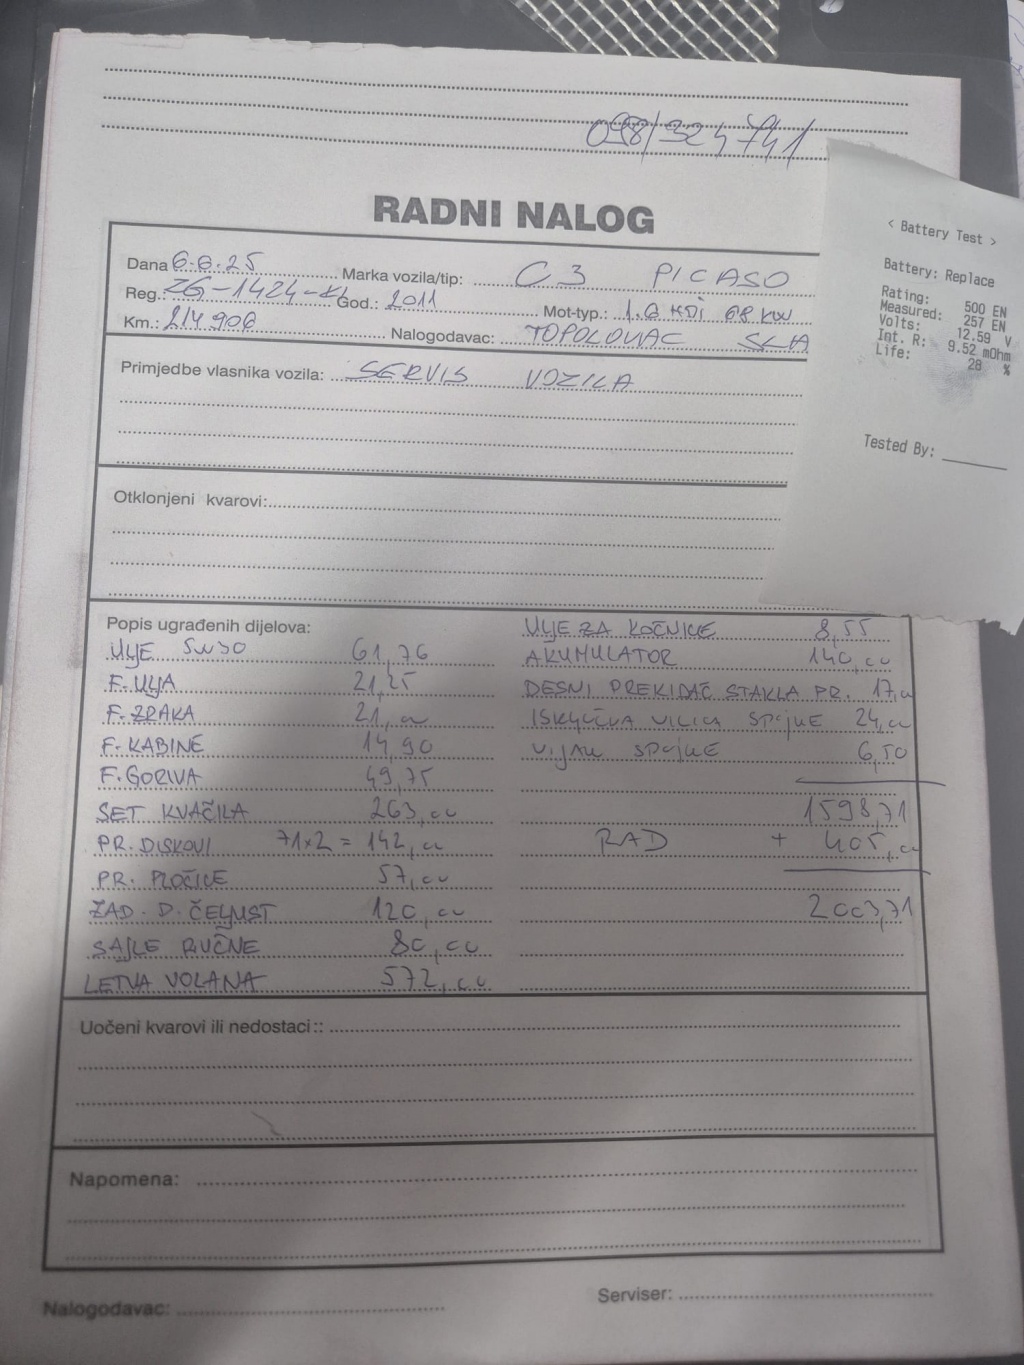 098/324741
RADNI NALOG
Dana 6.6.25 Marka vozila/tip: C3 PICASO
Reg.: ZG-1424-KL God.: 2011 Mot-typ.: 1.6 HDI 68 KW
Km.: 214 906 Nalogodavac: TOPOLOVAC
Primjedbe vlasnika vozila: SERVIS VOZILA
Otklonjeni kvarovi:
Popis ugrađenih dijelova:
ULJE 5W30 61,76
F. ULJA 21,25
F. ZRAKA 21,00
F. KABINE 14,90
F. GORIVA 49,75
SET KVAČILA 263,00
PR. DISKOVI 71x2 = 142,00
PR. PLOČICE 57,00
ZAD. D. ČELJUST 120,00
SAJLE RUČNE 80,00
LETVA VOLANA 572,00
ULJE ZA KOČNICE 8,55
AKUMULATOR 140,00
DESNI PREKIDAČ STAKLA PR. 17,0
ISKLJUČNA VILICA SPOJKE 24,00
VIJAK SPOJKE 6,50
1598,71
RAD + 405,00
2003,71
Uočeni kvarovi ili nedostaci::
Napomena:
Nalogodavac:
Serviser:
< Battery Test >
Battery: Replace
Rating: 500 EN
Measured: 257 EN
Volts: 12.59 V
Int. R: 9.52 mOhm
Life: 28 %
Tested By: